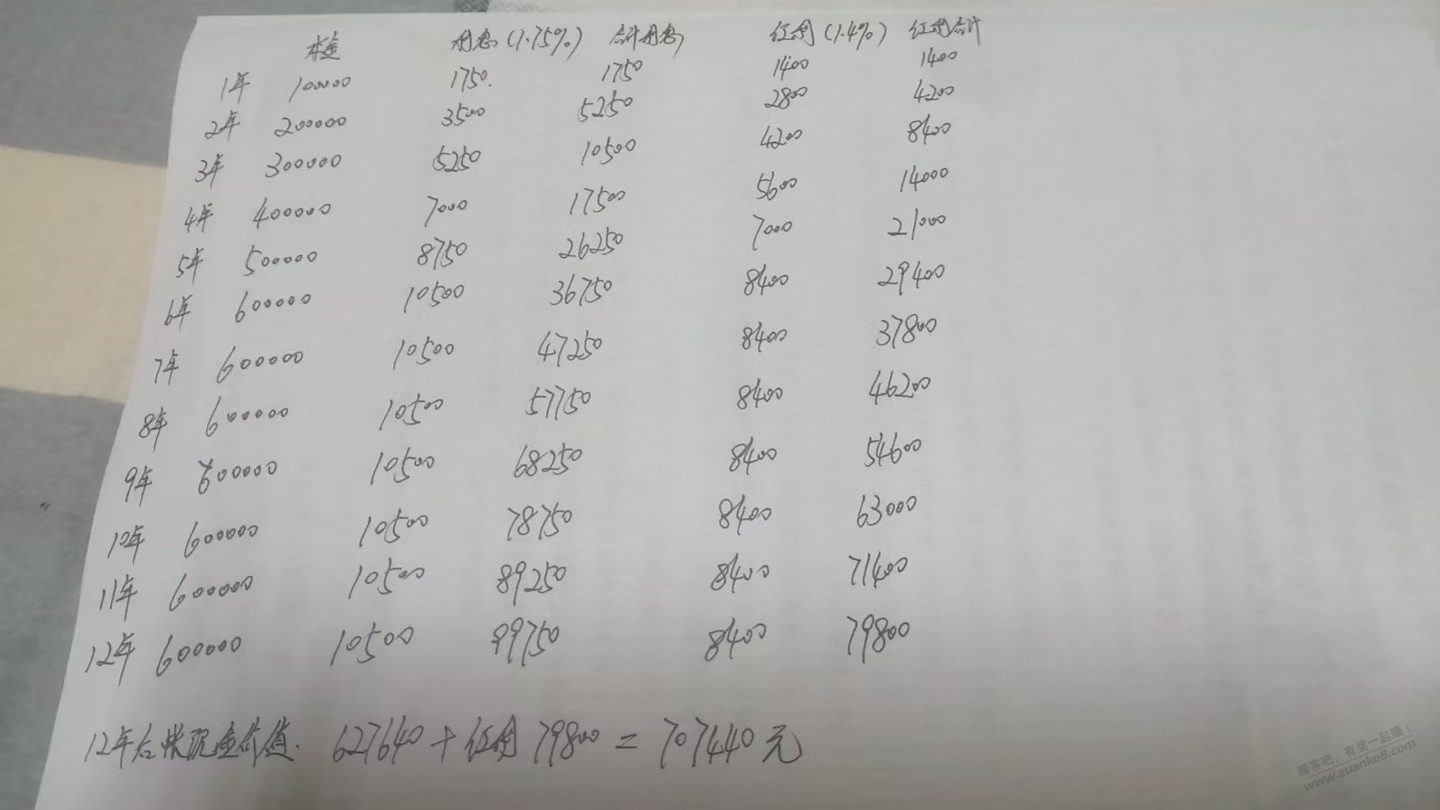 本金 利息(1.75%) 合计利息 红利(1.4%) 红利合计
1年 100000 1750. 1750 1400 1400
2年 200000 3500 5250 2800 4200
3年 300000 5250 10500 4200 8400
4年 400000 7000 17500 5600 14000
5年 500000 8750 26250 7000 21000
6年 600000 10500 36750 8400 29400
7年 600000 10500 47250 8400 37800
8年 600000 10500 57750 8400 46200
9年 600000 10500 68250 8400 54600
10年 600000 10500 78750 8400 63000
11年 600000 10500 89250 8400 71400
12年 600000 10500 99750 8400 79800
12年后 现金价值. 627640 + 红利 79800 = 707440 元
赚客吧,有奖一起赚!
www.zuanke8.com